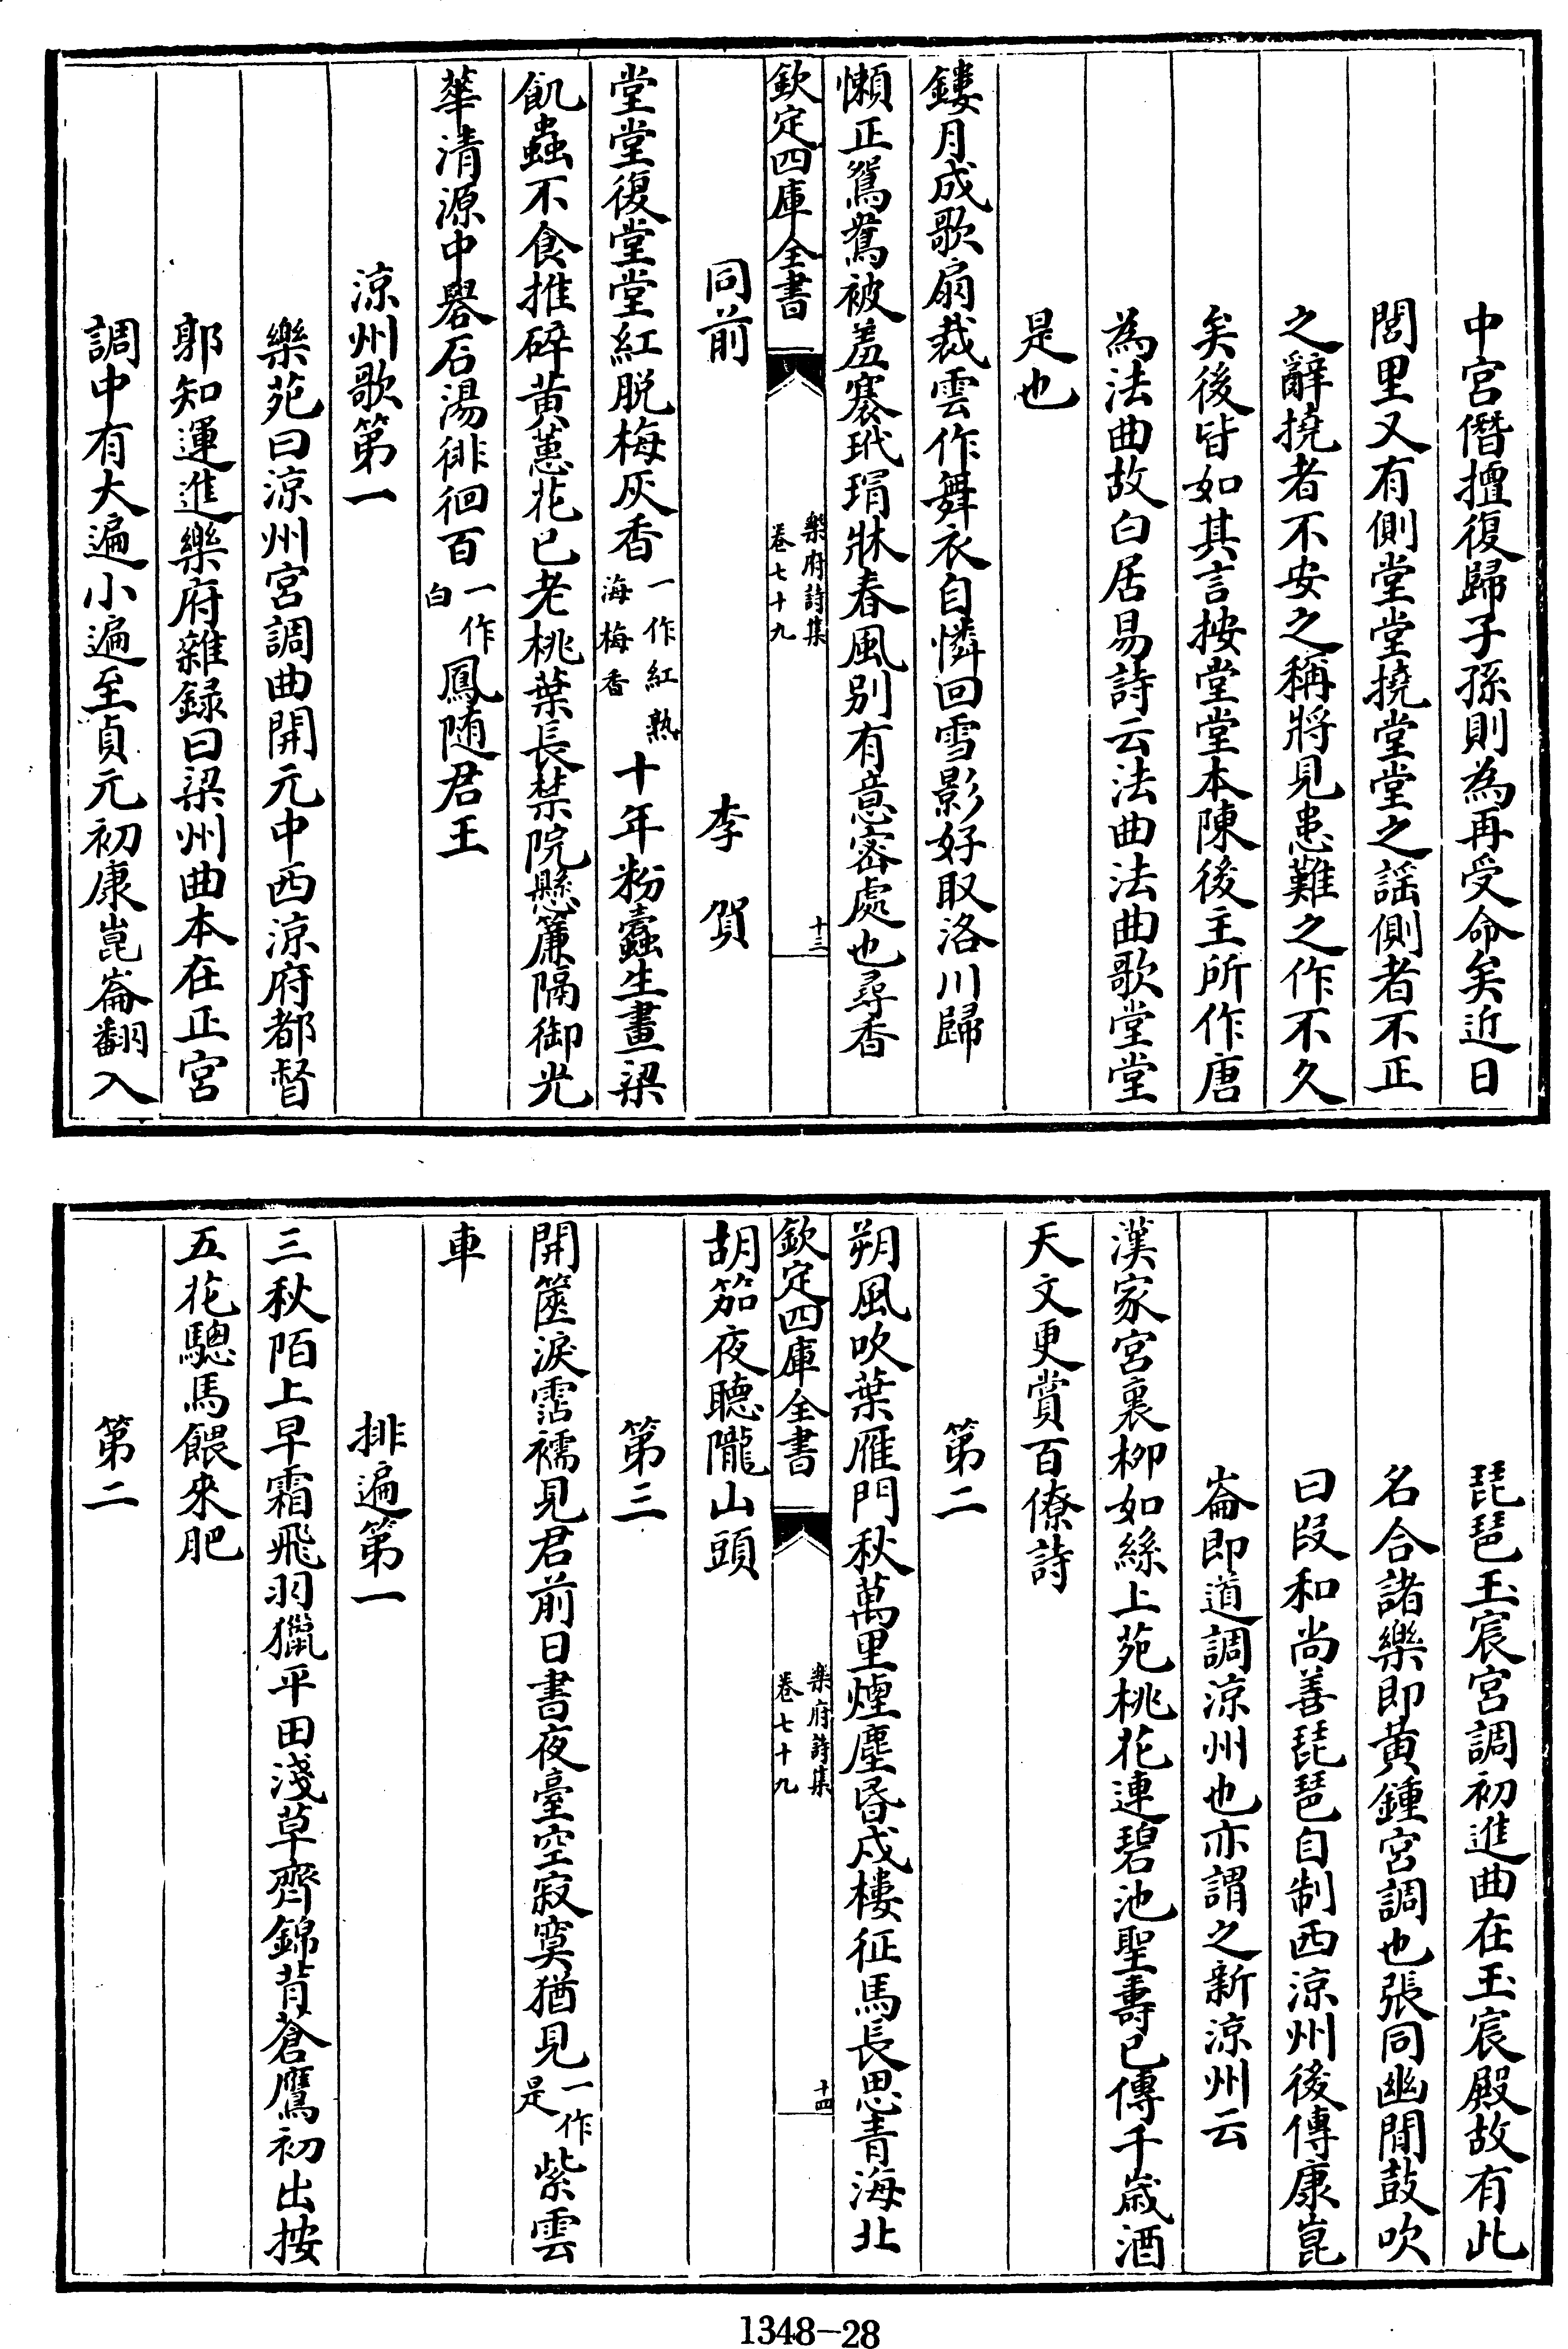 中宮僭擅復歸子孫則為再受命矣近日
閭里又有側堂堂撓堂堂之謡側者不正
之辭撓者不安之稱將見患難之作不久
矣後皆如其言按堂堂本陳後主所作唐
為法曲故白居易詩云法曲法曲歌堂堂
是也
鏤月成歌扇裁雲作舞衣自憐回雪影好取洛川歸
懶正鴛鴦被羞褰玳瑁牀春風别有意宻處也尋香
欽定四庫全書
樂府詩集
卷七十九
十三
同前 李賀
堂堂復堂堂紅脱梅灰香一作紅熟海梅香十年粉蠹生畫梁
飢蟲不食推碎黄蕙花已老桃葉長禁院懸簾隔御光
華清源中礜石湯徘徊百一作白鳳随君王
涼州歌第一
樂苑曰涼州宮調曲開元中西涼府都督
郭知運進樂府雜録曰梁州曲本在正宮
調中有大遍小遍至貞元初康崑崙翻入
琵琶玉宸宮調初進曲在玉宸殿故有此
名合諸樂即黄鍾宮調也張同幽閒鼓吹
曰段和尚善琵琶自制西涼州後傳康崑
崙即道調涼州也亦謂之新涼州云
漢家宮裏栁如絲上苑桃花連碧池聖壽已傳千嵗酒
天文更賞百僚詩
第二
朔風吹葉雁門秋萬里煙塵昏戍樓征馬長思青海北
欽定四庫全書
樂府詩集
卷七十九
十四
胡笳夜聽隴山頭
第三
開篋淚霑襦見君前日書夜臺空寂寞猶見一作是紫雲
車
排遍第一
三秋陌上早霜飛羽獵平田淺草齊錦背蒼鷹初出按
五花驄馬餵來肥
第二
1348-28